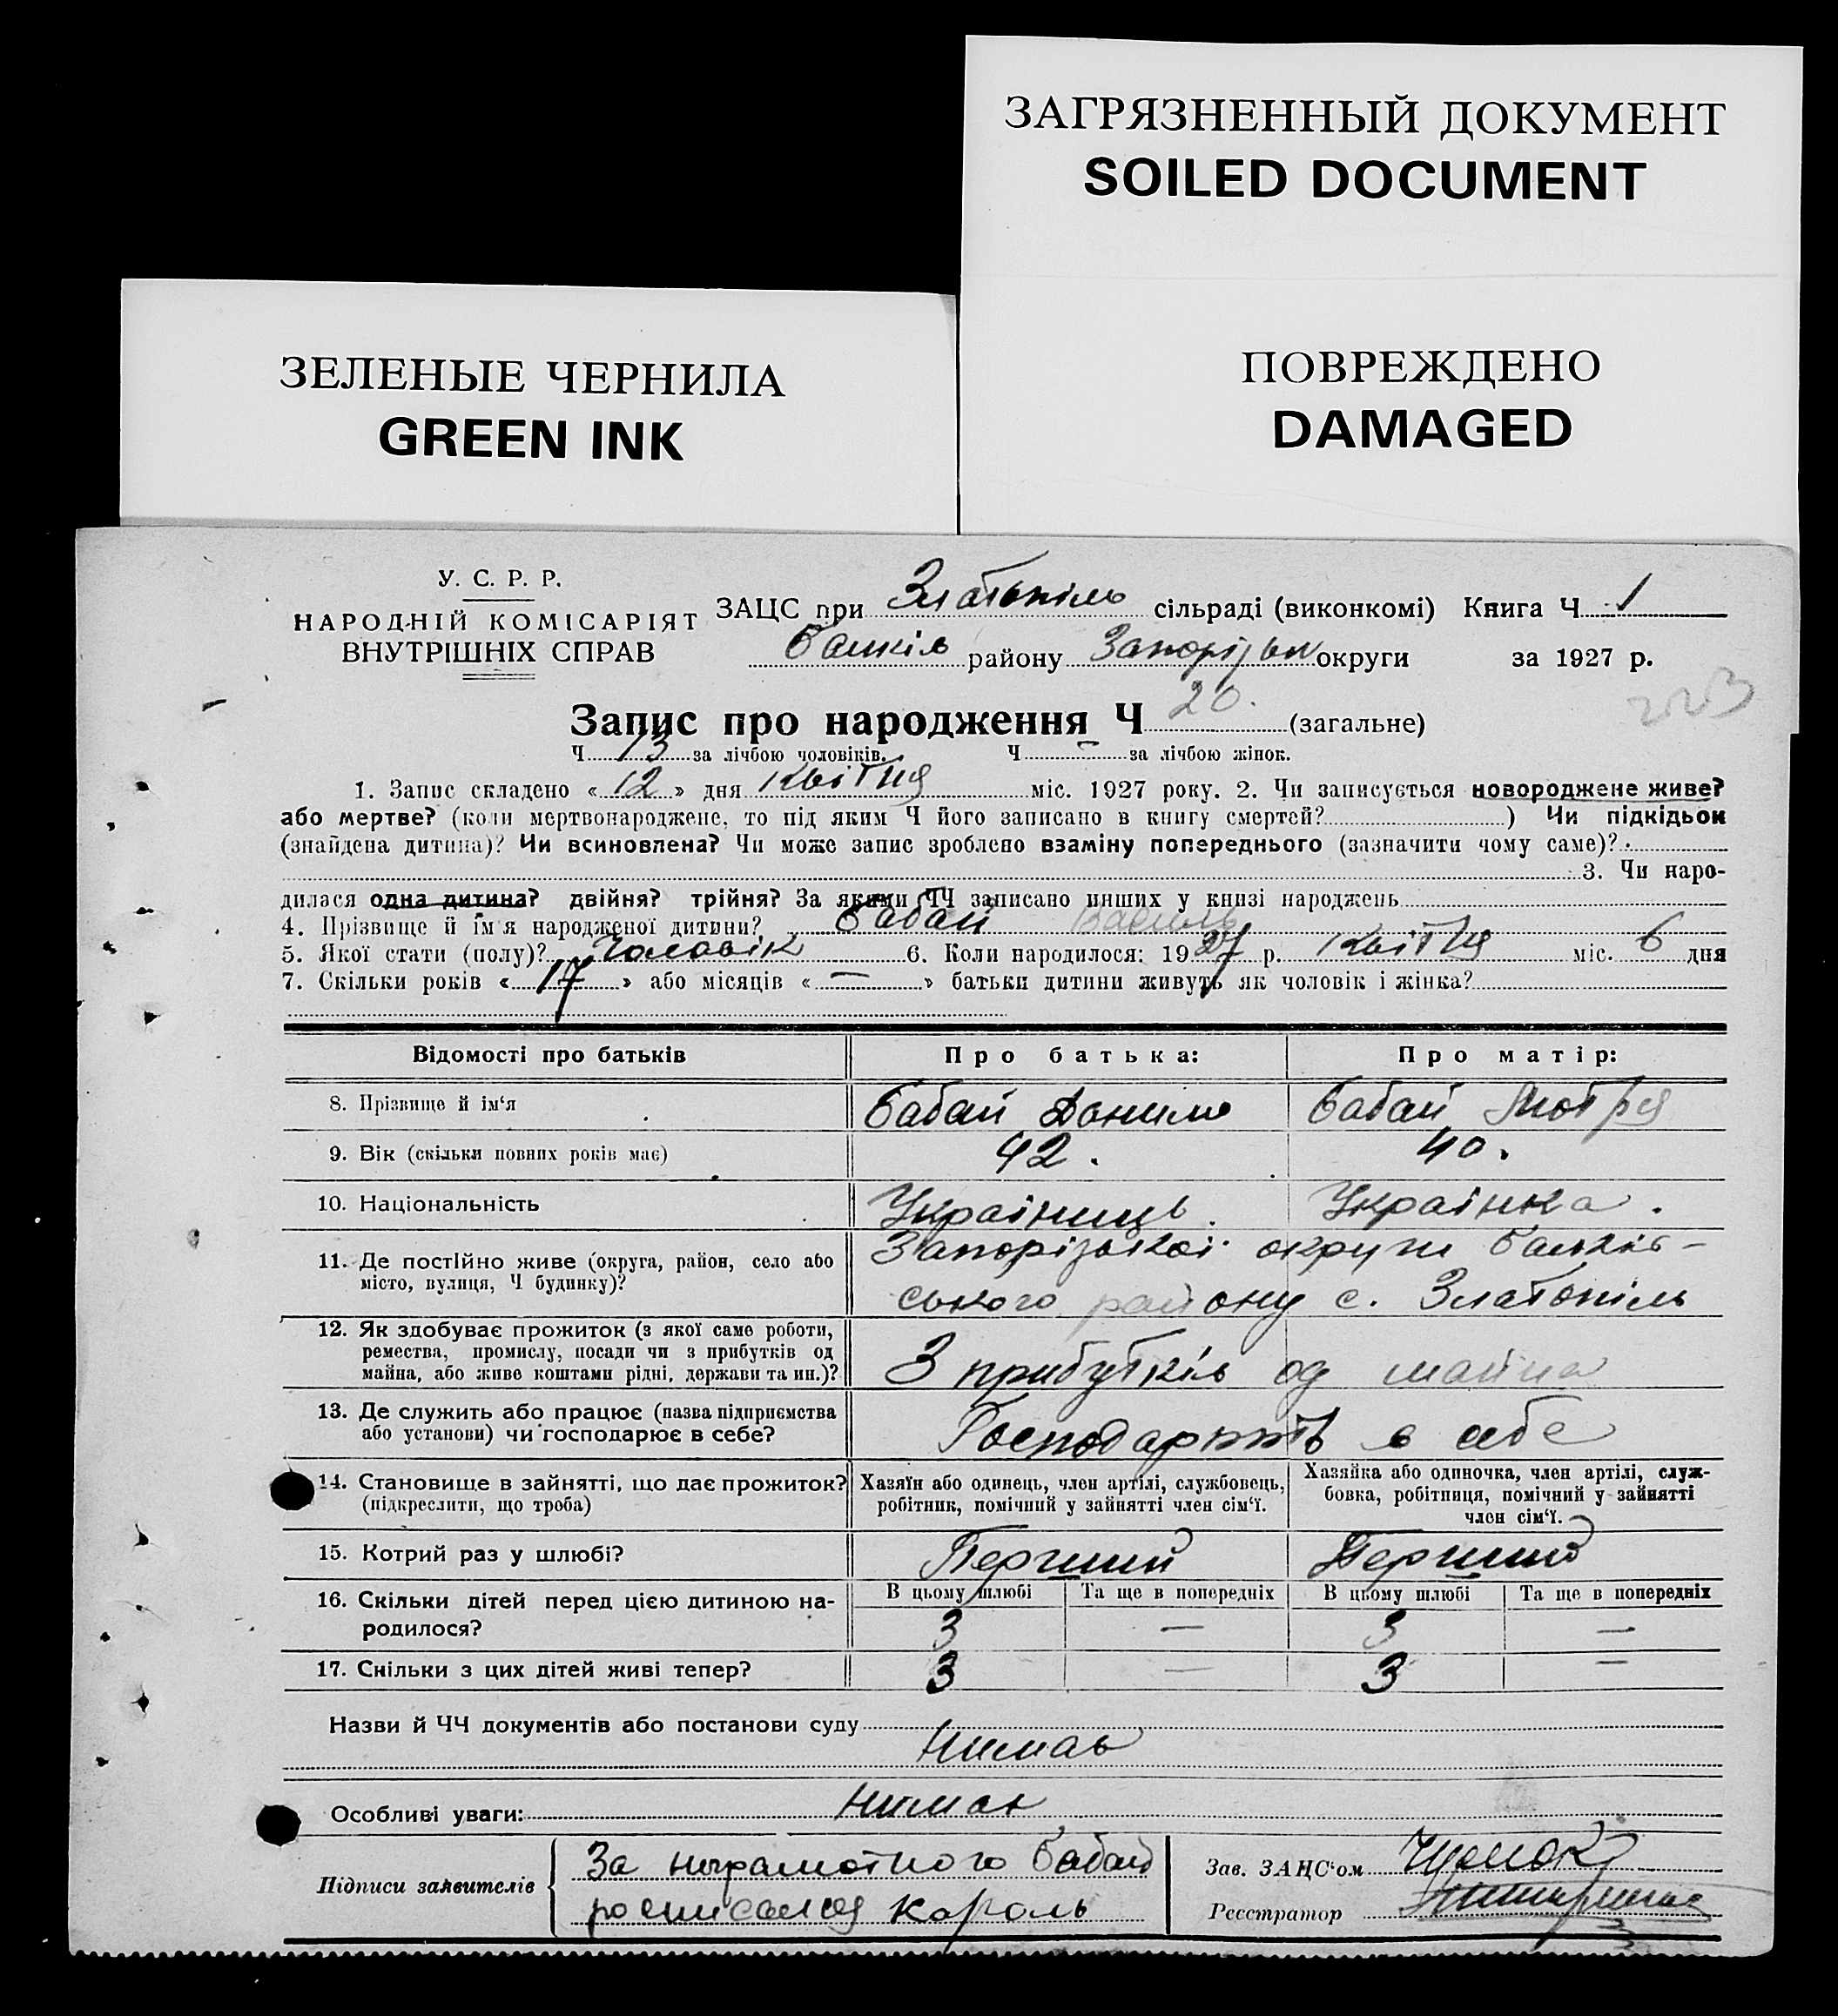 ЗАГРЯЗНЕННЫЙ ДОКУМЕНТ
SOILED DOCUMENT
ПОВРЕЖДЕНО
DAMAGED
ЗЕЛЕНЫЕ ЧЕРНИЛА
GREEN INK
У. С. Р. Р.
НАРОДНІЙ КОМІСАРІЯТ
ВНУТРІШНІХ СПРАВ
ЗАЦС при Златопіль сільраді (виконкомі) Книга Ч 1
району округи за 1927 р.
223
Запис про народження Ч 20. (загальне)
Ч 13 за лічбою чоловіків. Ч — за лічбою жінок.
1. Запис складено « 12 » дня Квітня міс. 1927 року. 2. Чи записується новороджене живе?
або мертве? (коли мертвонароджене, то під яким Ч його записано в книгу смертей? ) Чи підкідьок
(знайдена дитина)? Чи всиновлена? Чи може запис зроблено взаміну попереднього (зазначити чому саме)?
3. Чи наро-
дилася одна дитина? двійня? трійня? За якими ЧЧ записано инших у книзі народжень
4. Прізвище й ім'я народженої дитини? Бабай Василь
5. Якої стати (полу)? Чоловік 6. Коли народилося: 1927 р. Квітня міс. 6 дня
7. Скільки років « 17 » або місяців « — » батьки дитини живуть як чоловік і жінка?
Відомості про батьків Про батька: Про матір:
8. Прізвище й ім'я Бабай Данило Бабай Мотря
9. Вік (скільки повних років має) 42. 40.
10. Національність Українець. Українка.
11. Де постійно живе (округа, район, село або Запорізької округи Балків-
місто, вулиця, Ч будинку)? ського району с. Златопіль
12. Як здобуває прожиток (з якої саме роботи,
ремества, промислу, посади чи з прибутків од
майна, або живе коштами рідні, держави та ин.)? З прибутків од майна
13. Де служить або працює (назва підприємства
або установи) чи господарює в себе? Господарюють в себе
14. Становище в зайнятті, що дає прожиток? Хазяїн або одинець, член артілі, службовець, Хазяйка або одиночка, член артілі, служ-
(підкреслити, що треба) робітник, помічний у зайнятті член сім'ї. бовка, робітниця, помічний у зайнятті
член сім'ї.
15. Котрий раз у шлюбі? Перший Перший
16. Скільки дітей перед цією дитиною на- В цьому шлюбі Та ще в попередніх В цьому шлюбі Та ще в попередніх
родилося? 3 — 3 —
17. Скільки з цих дітей живі тепер? 3 — 3 —
Назви й ЧЧ документів або постанови суду
Нимає
Особливі уваги: Нимає
Підписи заявителів За неграмотного Бабай
росписался Король
Зав. ЗАЦС'ом
Реєстратор